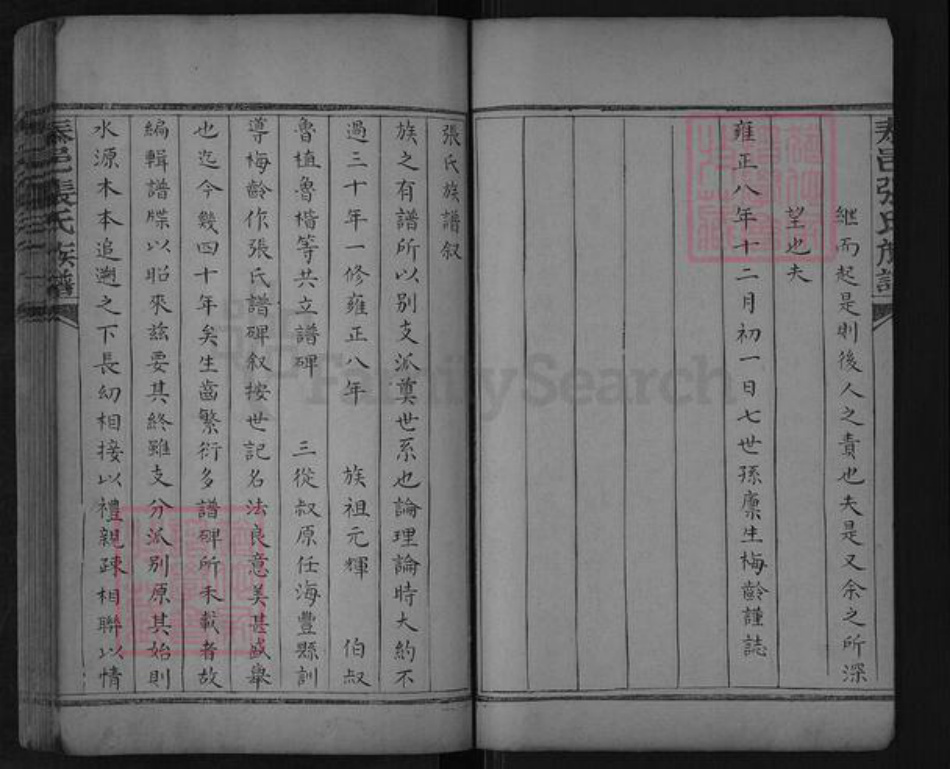 繼而起是則後人之責也夫是又余之所深
望也夫
雍正八年十二月初一日七世孫廩生梅齡謹誌
張氏族譜
張氏族譜叙
族之有譜所以别支派奠世系也論理論時大約不
過三十年一修雍正八年 族祖元輝 伯叔
魯植魯楷等共立譜碑 三從叔原任海豐縣訓
導梅齡作張氏譜碑叙按世記名法良意美甚盛舉
也迄今幾四十年矣生齒繁衍多譜碑所未載者故
編輯譜牒以昭來兹要其終雖支分派别原其始則
水源木本追遡之下長幼相接以禮親疎相聯以情
邑張氏族譜
FamilySearch